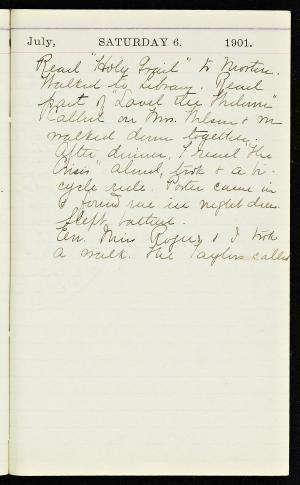 July, SATURDAY 6. 1901.
Read "Holy Grail" to Morton.
Walked to library. Read
part of "Lavel the
Called on Mrs. Nelson & we
walked down together.
After dinner, I read "The
Crisis" aloud, took a bi-
cycle ride. Porter came in
& found me in night dress
Slept
Eve. Miss Rogers & I took
a walk. The Taylors called